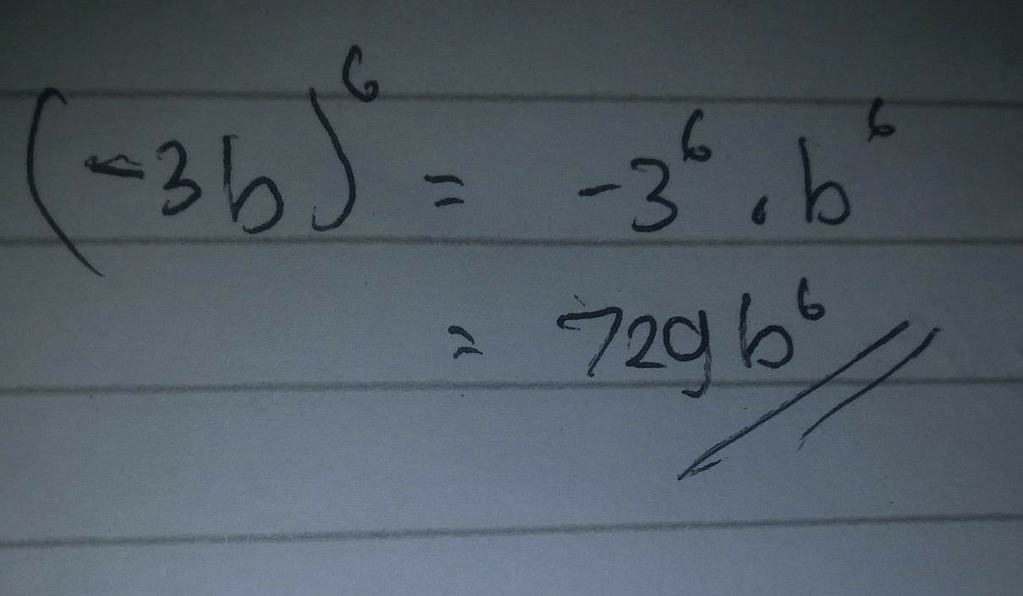 (-3b)⁶ = -3⁶ . b⁶
= 729b⁶